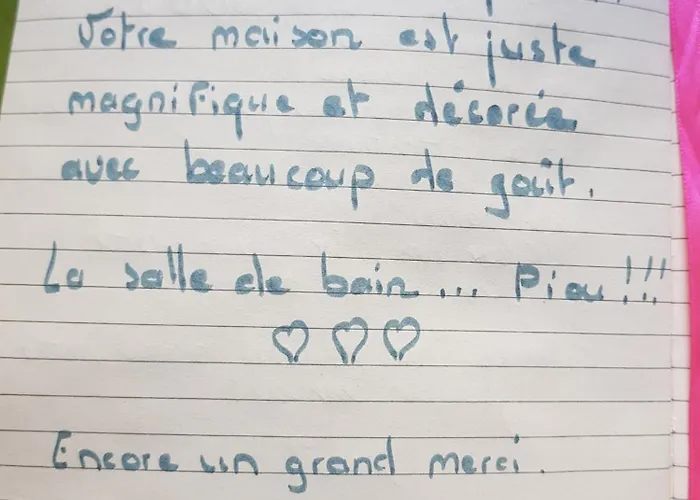 Votre maison est juste
magnifique et décorée
avec beaucoup de goût.
La salle de bain ... Piou !!!
♡ ♡ ♡
Encore un grand merci.